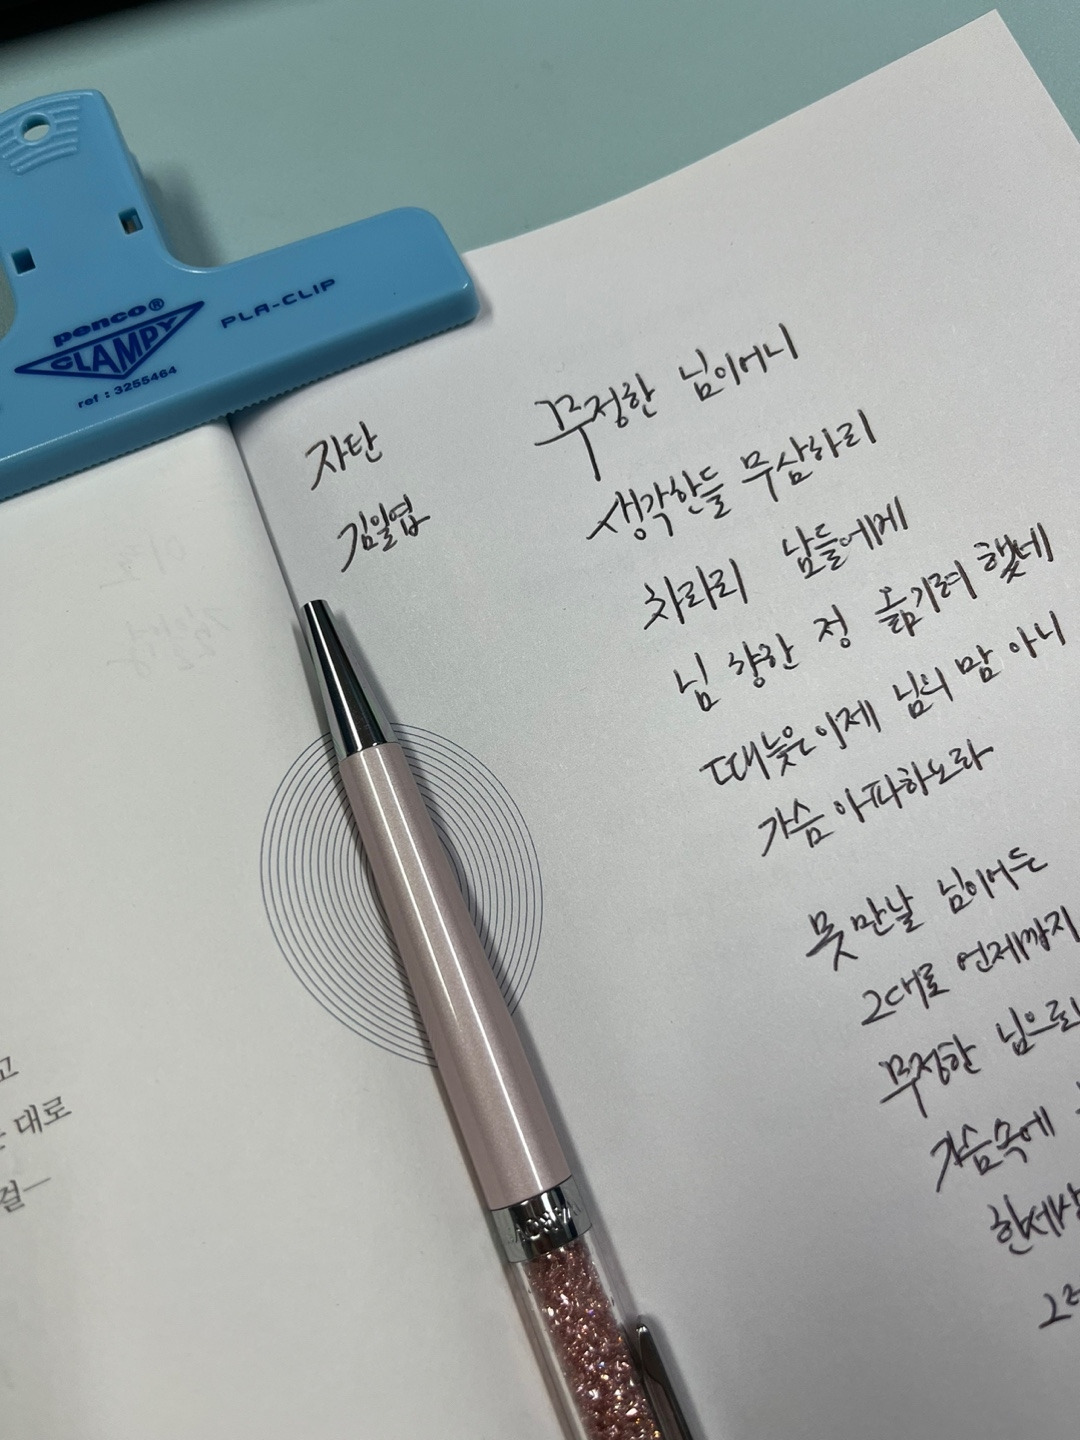 penco®
CLAMPY
PLA-CLIP
ref : 3255464
자탄
김일엽
무정한 님이어니
생각한들 무삼하리
차라리 남들에게
님 향한 정 옮기려 했네
때늦은 이제 님의 맘 아니
가슴 아파하노라
못 만날 님이어든
그대로 언제까지
무정한 님으로
가슴속에
한세상
대로
걸—
고